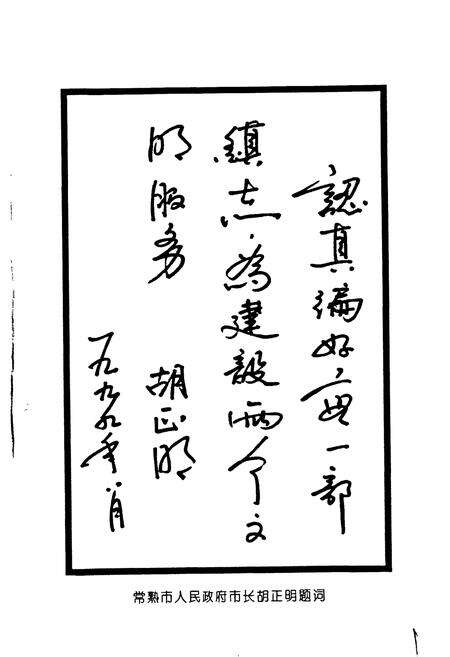 認真编好每一部
鎮志，為建設两个文
明服务
胡正明
一九九九年八月
常熟市人民政府市长胡正明题词